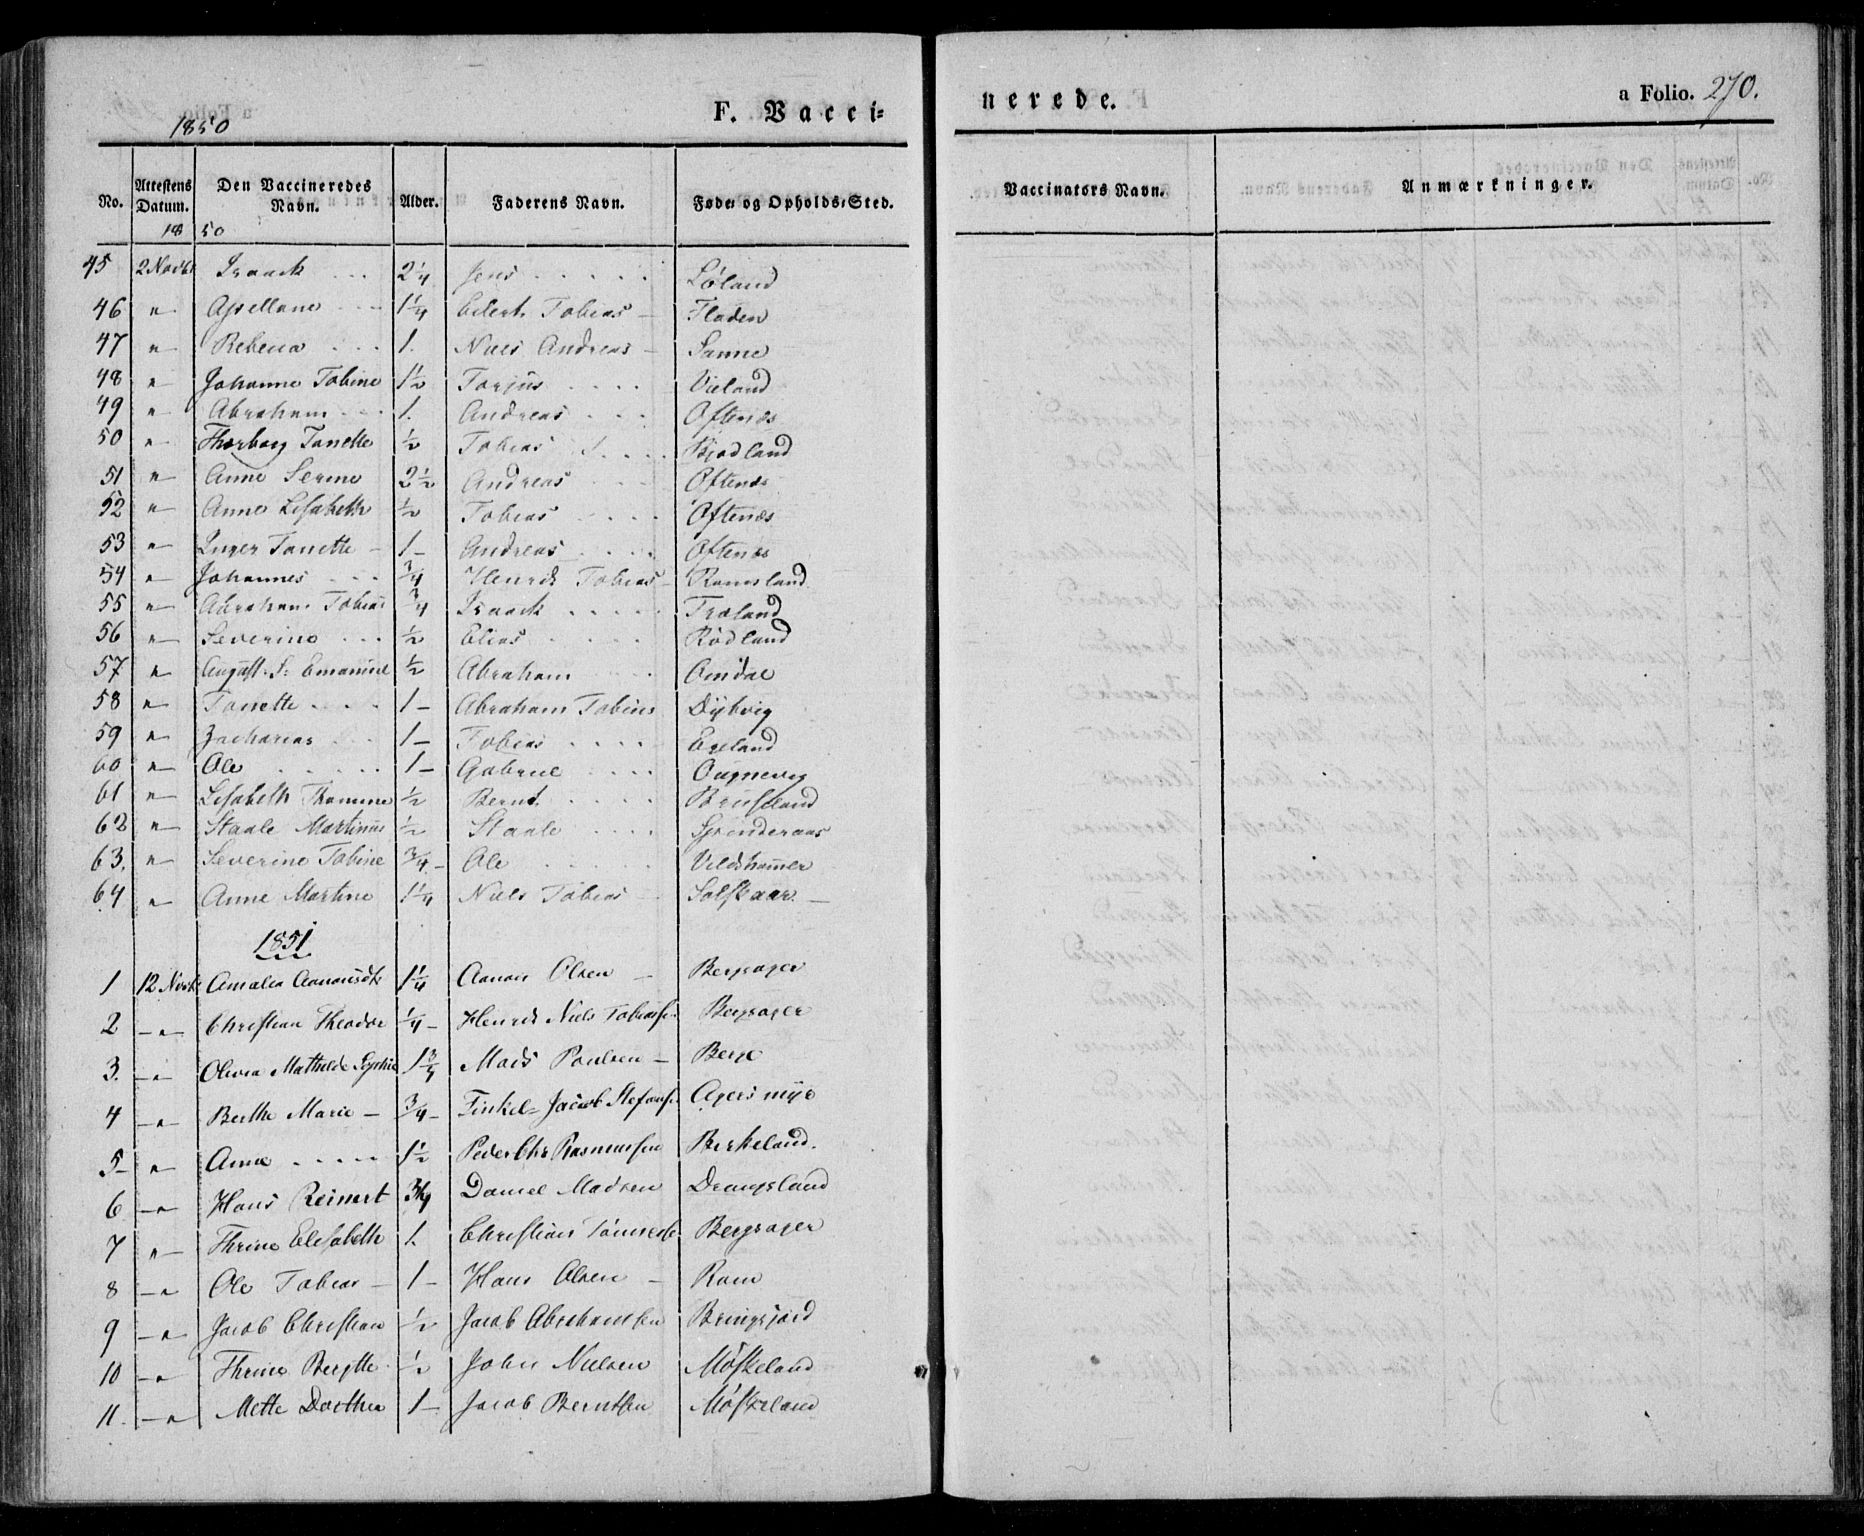 F. Vacci-
nerede.
a Folio. 270.
1850
No. Attestens Datum. Den Vaccineredes Navn. Alder. Faderens Navn. Føde- og Opholds-Sted. Vaccinators Navn. Anmærkninger.
18 50
45 2 Novbr Isaack 2 1/4 Jens Løland
46 " Axellane 1 1/4 Eilert Tobias - Fladen
47 " Rebecca 1. Niels Andreas - Sanne
48 " Johanne Tobine 1 1/2 Torjus Vieland
49 " Abraham 1. Andreas Oftenæs
50 " Thorborg Tonette 1/2 Tobias Bjodland
51 " Anne Serine 2 1/2 Andreas Oftenæs
52 " Anne Lisabeth 1/2 Tobias Oftenæs
53 " Inger Tonette - 1 - Andreas Oftenæs
54 " Johannes 3/4 Henrik Tobias - Ramsland
55 " Abraham Tobias 3/4 Isaack Traland
56 " Severine 1/2 Elias Rødland
57 " August S: Emanuel 1/2 Abraham Omdal
58 " Tonette 1 - Abraham Tobias Dybvig
59 " Zacharias 1 - Tobias Egeland
60 " Ole 1 - Gabriel
61 " Lisabeth Thomine 1/2 Bernt Bruseland
62 " Staale Martinus 1/2 Staale
63. " Severine Tobine 3/4 - Ole
64 " Anne Martine 1 1/4 Niels Tobias - -
1851
1 12 Novbr Amalia 1 1/4 Aanon Olsen - Bergsager
2 - " Christian Theodor 1/4 - Henrik Niels Tobiassen Bergsager
3. - " Olivia Mathilde Sophie 1 3/4 Mads Poulsen - Berge
4 - " Berthe Marie - 3/4 - Jacob Stefansen Agersmyr
5 - " Anne 1 1/2 Peder Chr Rasmussen Birkeland.
6 - " Hans Reinert 3/4 Daniel Madsen Drangsland
7 " - Thrine Elisabeth 1. Christian Tønnesse Bergsager
8 - " Ole Tobias - 1 - Hans Olsen - Rom
9 - " Jacob Christian 1/2 Jacob Abrahamsen Bringsjord
10 - " Thrine Bergtte 1/2 John Nielsen Møskeland
11. - " Mette Dorthea 1 - Jacob Berntsen Møskeland